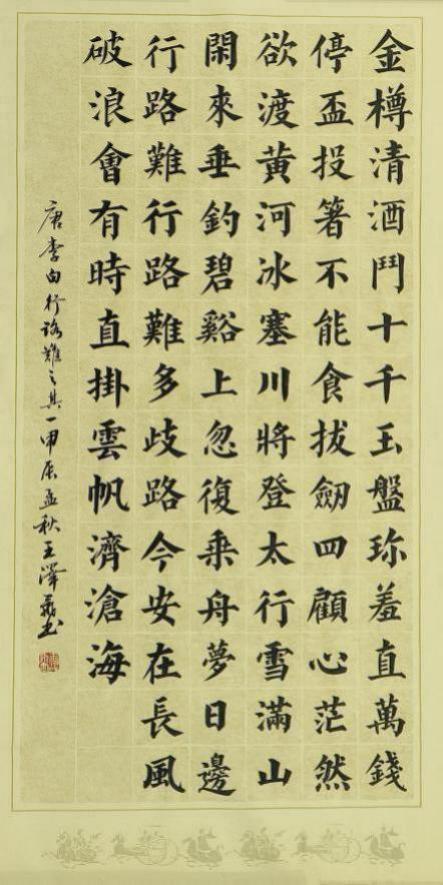 金樽清酒鬥十千玉盤珍羞直萬錢
停盃投箸不能食拔劒四顧心茫然
欲渡黃河冰塞川將登太行雪滿山
閑來垂釣碧谿上忽復乘舟夢日邊
行路難行路難多歧路今安在長風
破浪會有時直掛雲帆濟滄海
唐李白行路難之其一甲辰孟秋王澤书